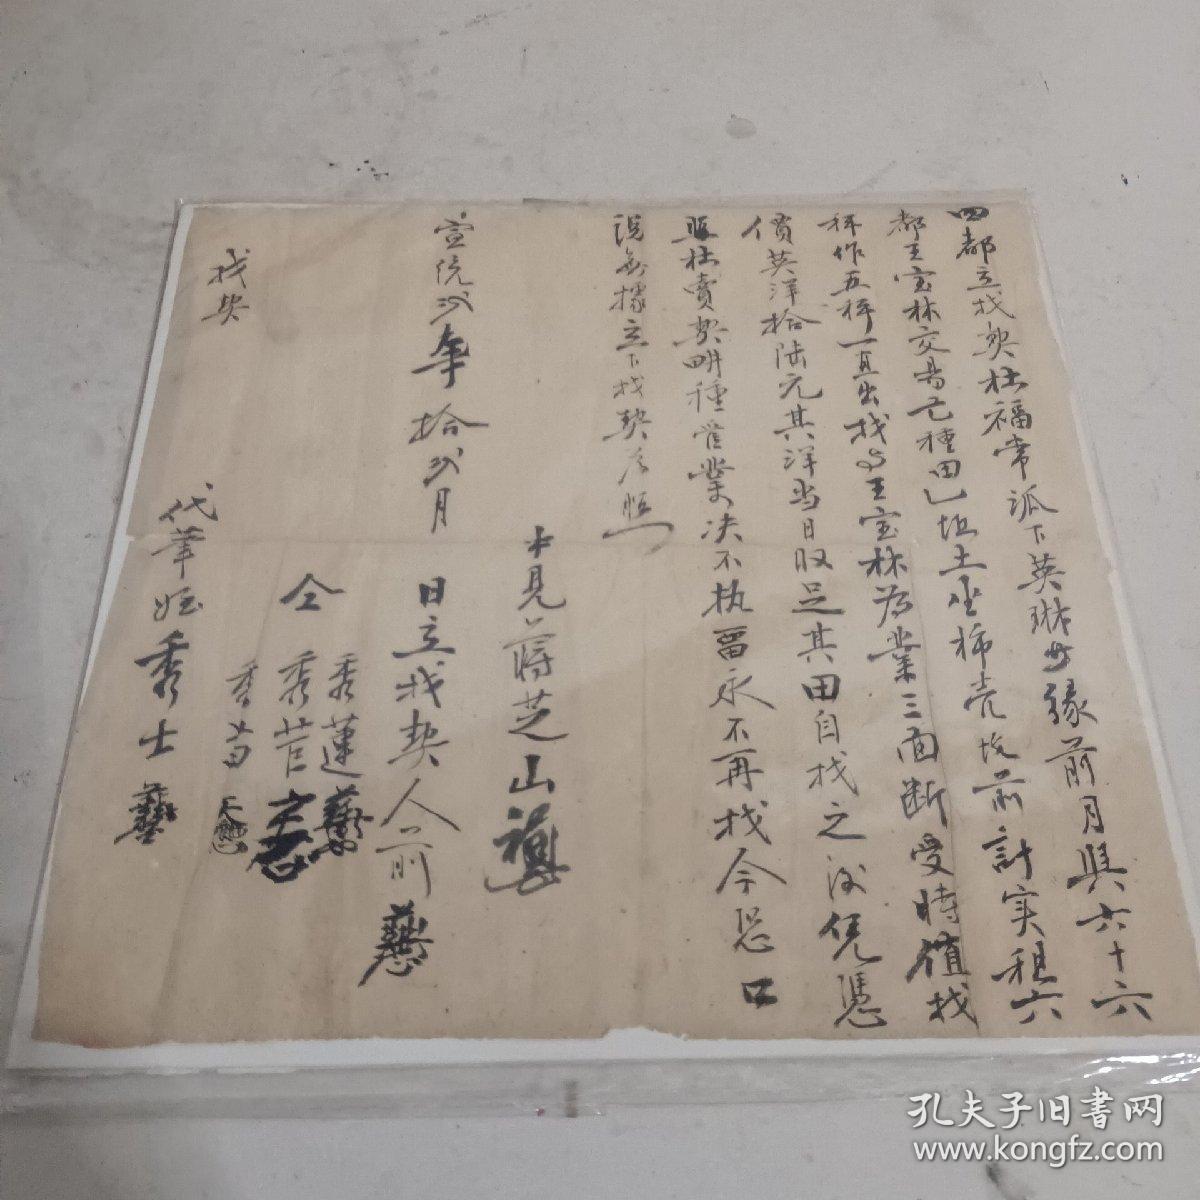 四都立找契杜福常派下英琳等緣前月與六十六
都王宝林交易乙種田乚坵土坐柿壳坟前計実租六
秤作五秤一直出找与王宝林為業三面断受時值找
價英洋拾陆元其洋当日収足其田自找之後凭憑
照杜賣契畊種管業决不执畱永不再找今恐口
説無據立下找契為照
中見蒋芝山
宣統弍年拾弍月 日立找契人前
仝 秀蓮
秀官
秀苟
代筆姪秀士
找契
孔夫子旧书网
www.kongfz.com